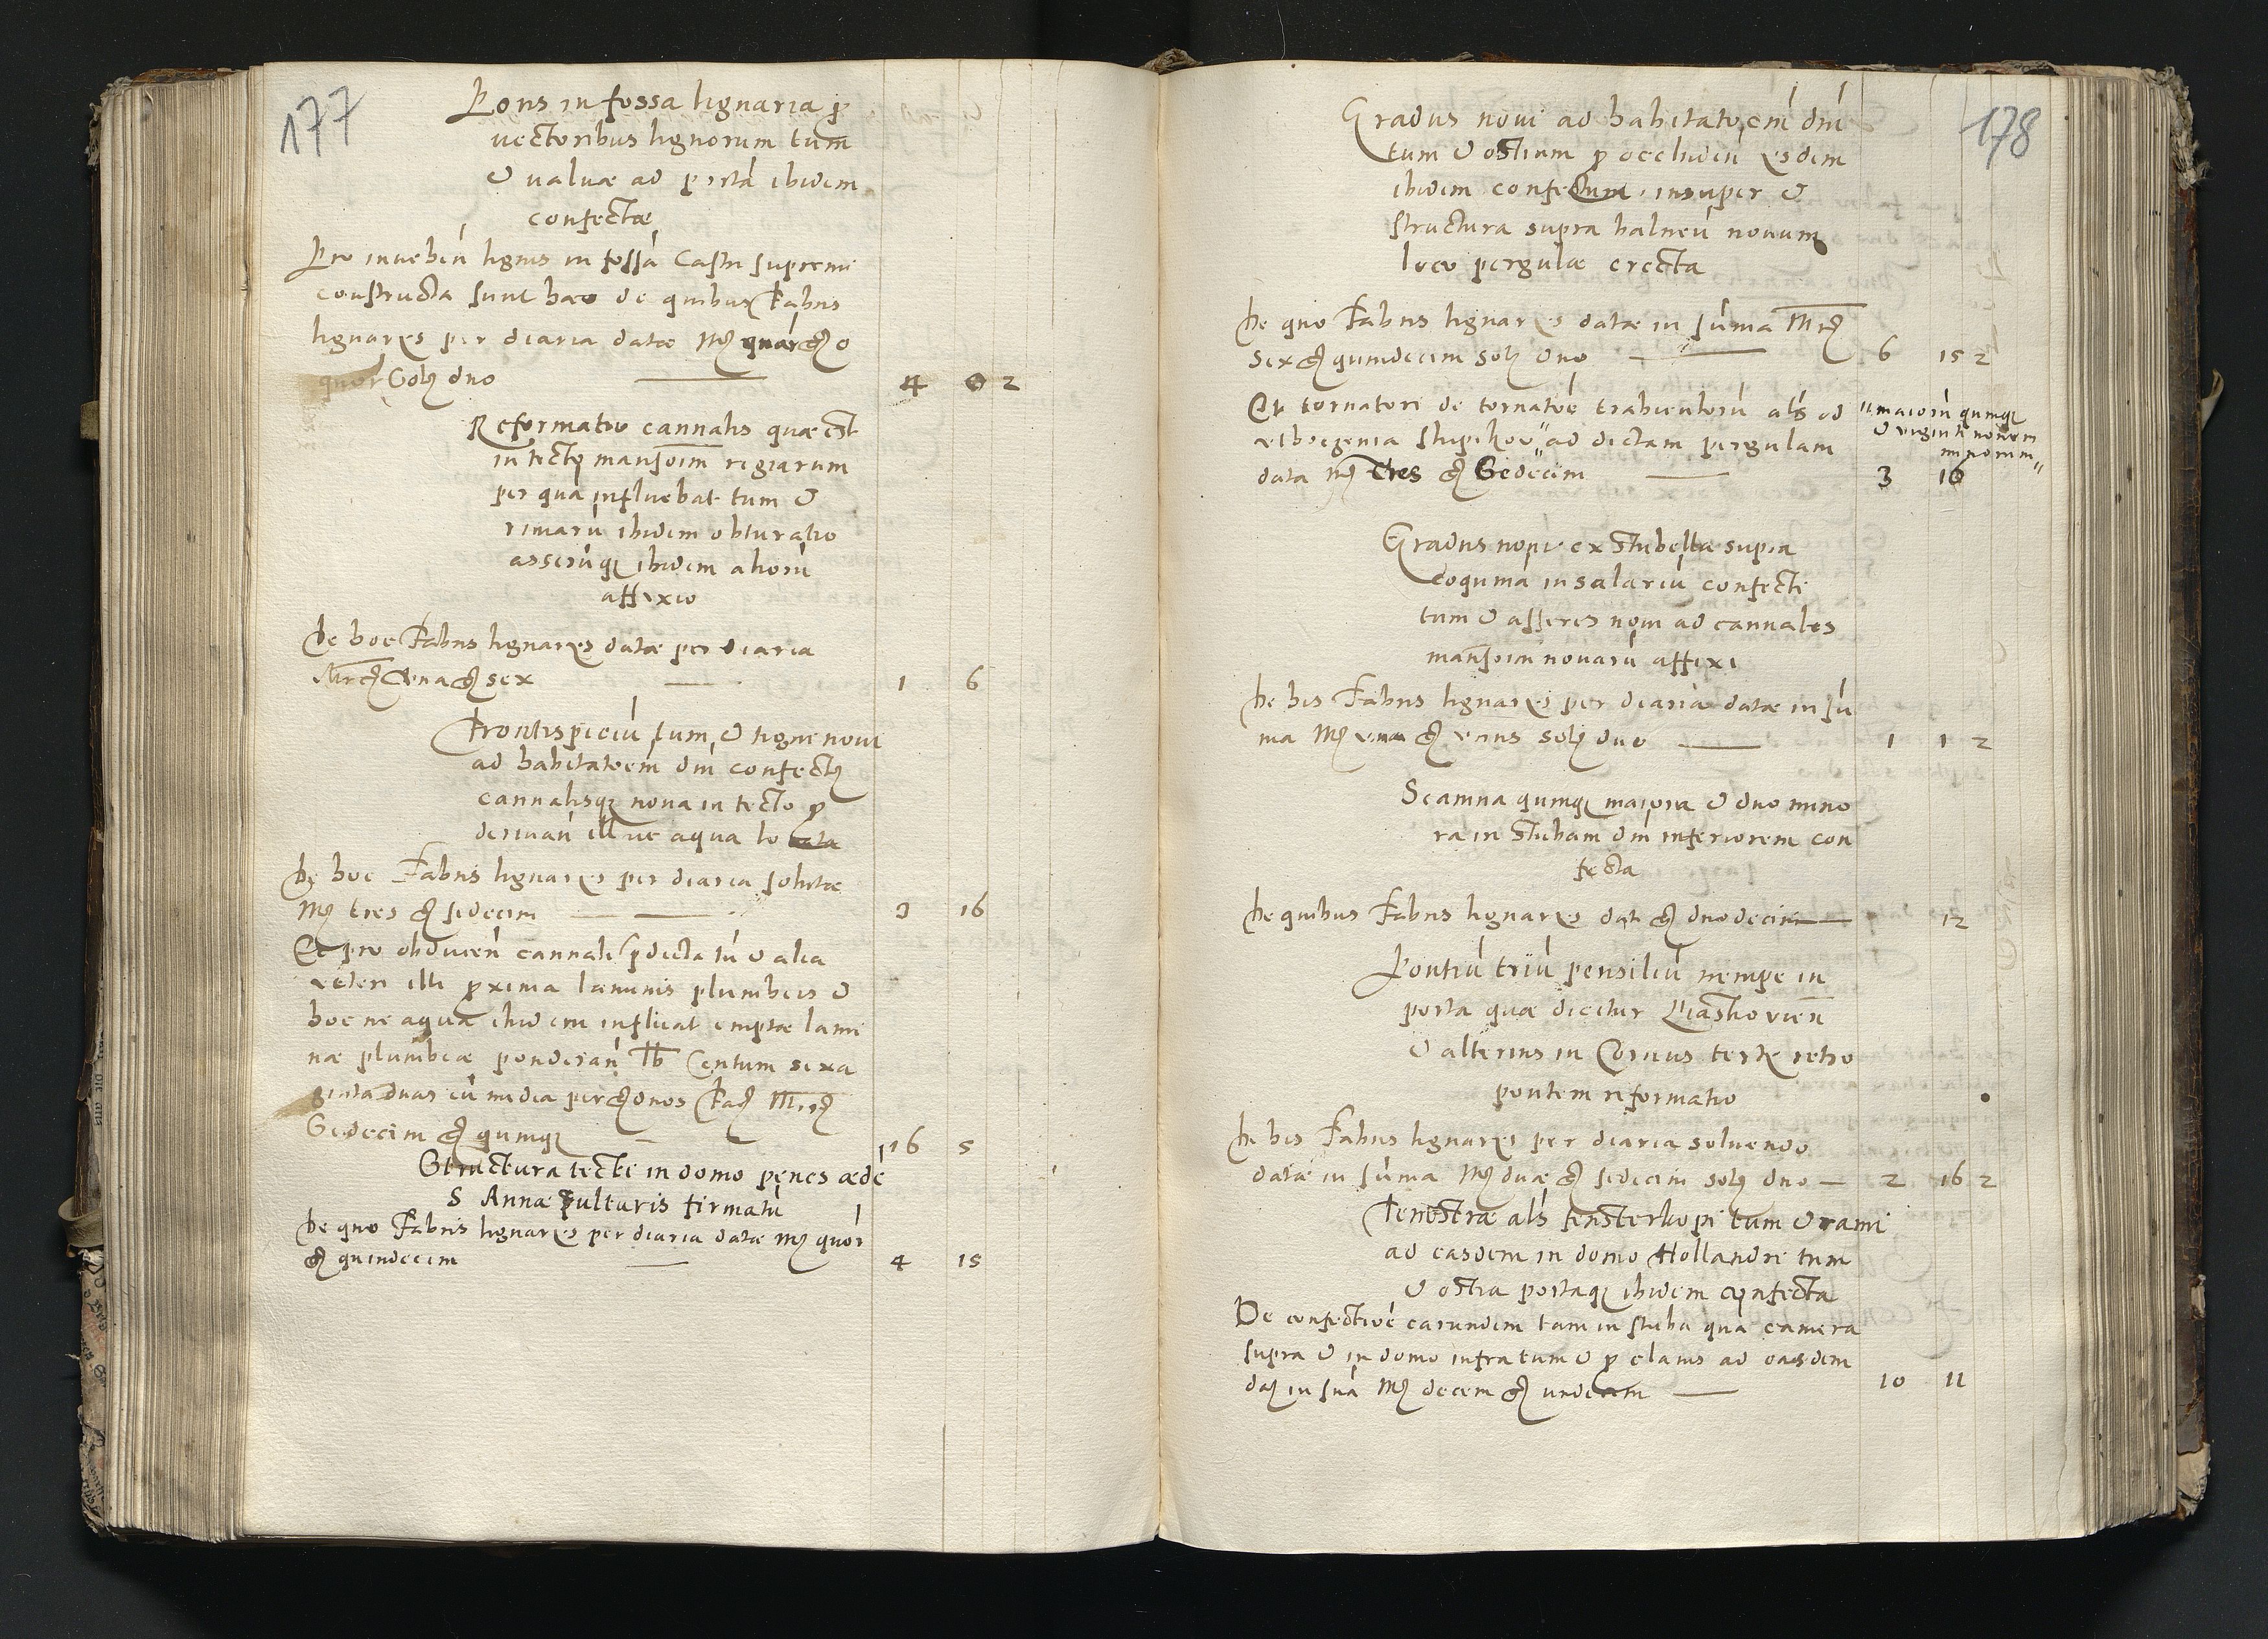 177
Pons in fossa lignaria p
vectoribus lignorum tum
& valvae ad portã ibidem
confectae
Pro invehen̄ lignis in fossã Castri supremi
constructa sunt haec de quibus Fabris
lignarys per diaria datae
quor Solˀ duo 4 0 2
Reformatio cannalis quae est
in tecto mansoim̄ regiarum
per quã influebat tum &
rimarũ ibidem obturatio
asserũqꝫ ibidem aliorũ
affixio
De hoc Fabris lignarys datae per diaria
Mrcˀ Una gˀ sex 1 6
Frontispiciũ tum & tigni novi
ad habitatoem̄ dn̄i confectˀ
cannalisqꝫ nova in tecto p
derivan̄ illuc aqua locata
De hoc Fabris lignarys per diaria solutae
Mˀ tres gˀ sedecim 3 16
Et pro obducen̄ cannali pdicta tũ & alia
veteri illi proxima laminis plumbeis &
hoc ne aqua ibidem influat emptae lami
nae plumbeae ponderan̄ lb Centum sexa
ginta duas cũ media per gˀ duos Facˀ Mrcˀ
Sedecim gˀ quinqꝫ 16 5
Structura tecti in domo penes aedē
S Annae fulturis firmatũ
De quo Fabris lignarys per diaria datae Mˀ quor
gˀ quindecim 4 15
178
Gradus novi ad habitatoem̄ dn̄i
tum & ostium p occluden̄ esdem
ibidem confectum insuper &
structura supra balneũ novum
loco pergulae erecta
De quo Fabris lignarys datae in sũma Mrcˀ
sex gˀ quindecim Solˀ duo 6 15 2
Et tornatori de tornatoē trabientorũ als od
vithoczenia slupikow ad dictam pergulam
"maiorũ quinqꝫ
& viginti novem
minorum"
data Mˀ tres gˀ Sedecim 3 16
Gradus novi ex stubella supra
coquinã in salariũ confecti
tum & asseres novi ad cannales
mansoim̄ novarũ affixi
De his Fabris lignarys per diaria datae in sũ
ma Mˀ una gˀ unus Solˀ duo 1 1 2
Scamna quinqꝫ maiora & duo mino
ra in stubam dn̄i inferiorem con
fecta
De quibus Fabris lignarys dat gˀ duodecim 12
Pontiũ triũ pensiliũ nempe in
porta quae dicitur Piastkovien̄
& alterius in Cornus tertii retro
pontem reformatio
De his Fabris lignarys per diaria solvendo
datae in sũma Mˀ duae gˀ sedecim Solˀ duo 2 16 2
Fenestrae als fensterkopi tum & rami
ad easdem in domo Hollandri tum
& ostia portaqꝫ ibidem confecta
De confectioē earundem tam in stuba quã camera
supra & in domo infra tum & p clavis ad easdem
datˀ in sũa Mˀ decem gˀ undecim 10 11